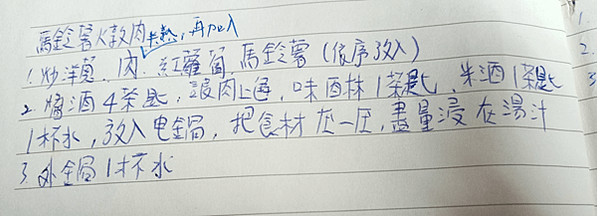 馬鈴薯燉肉 半熟,再加入
1.炒洋蔥、肉、紅蘿蔔、馬鈴薯(依序放入)
2.醬油4茶匙,讓肉上色,味醂1茶匙,米酒1茶匙
1杯水,放入电鍋,把食材压一压,盡量浸在湯汁
3.外鍋1杯水
1.
2.
3